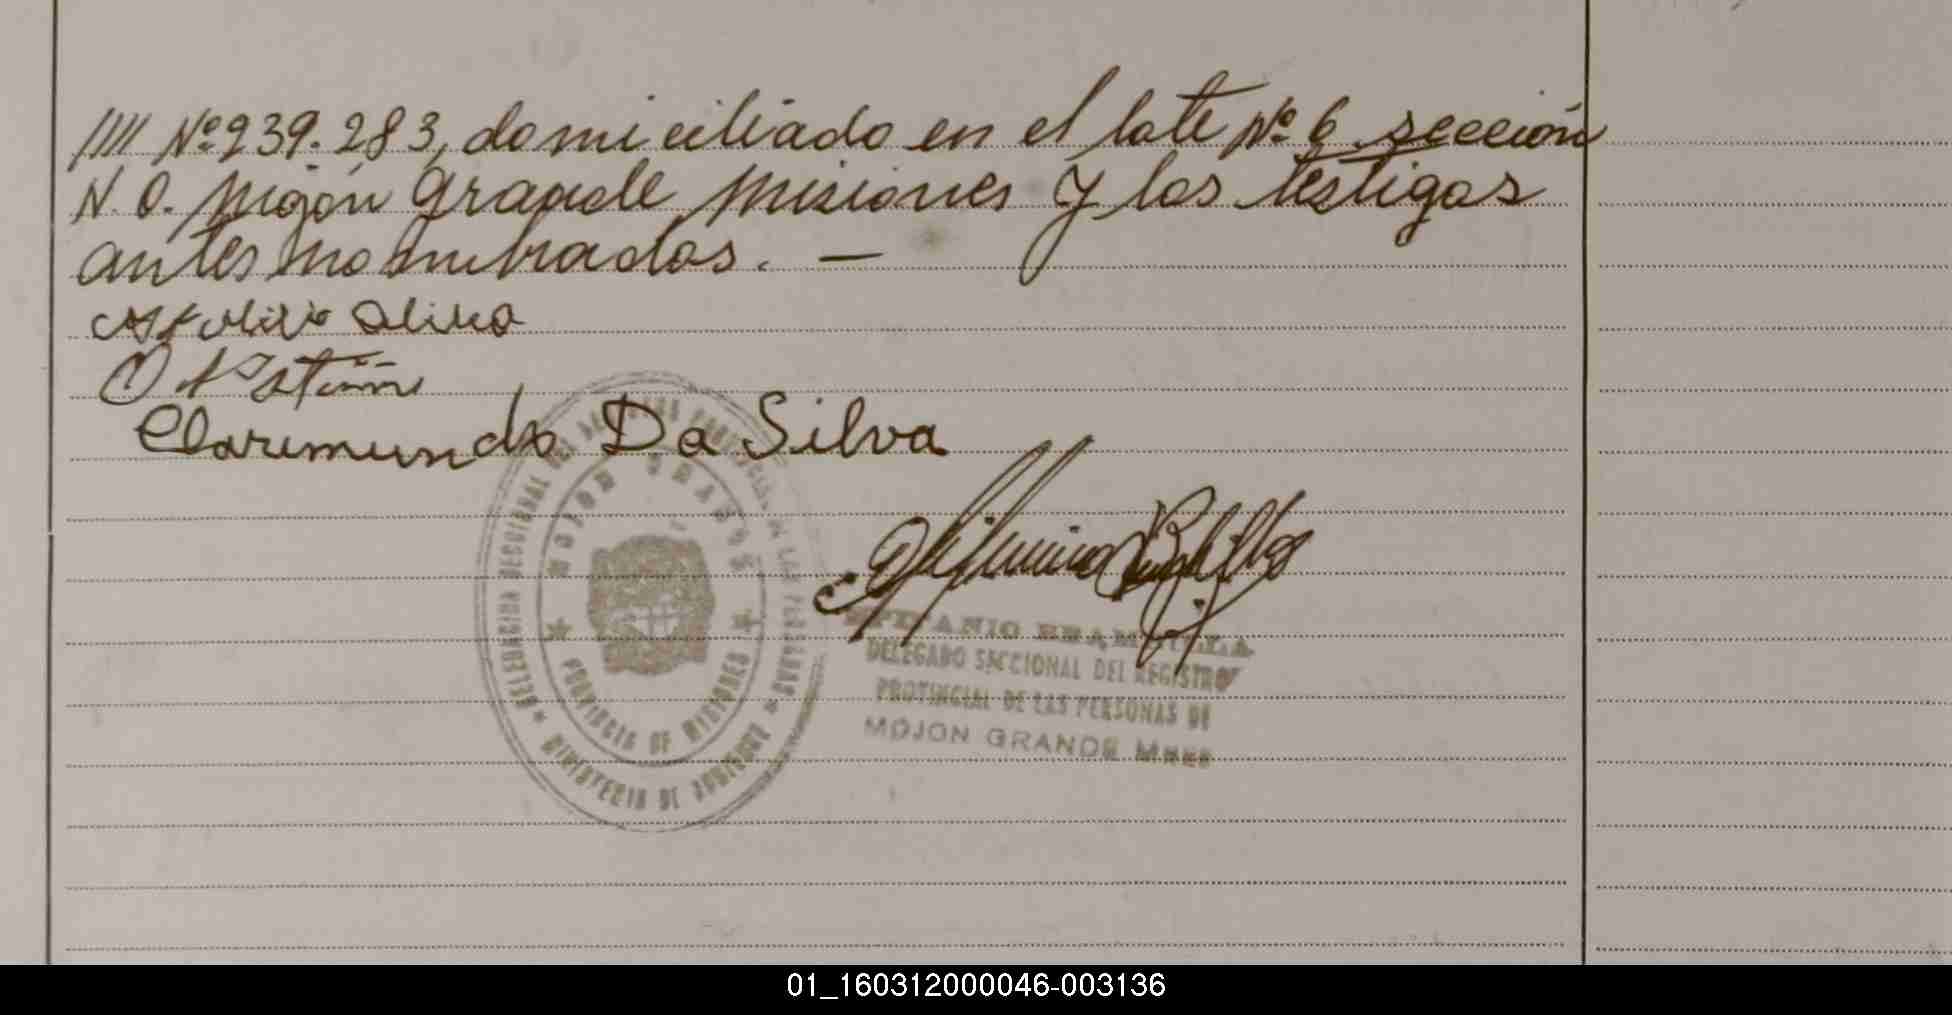 //// Nº 239.283, domiciliado en el lote Nº 6 sección
N.O. Mojón Grande Misiones y los testigos
antes nombrados. —
Oliva
Claremundo Da Silva
DELEGACION SECCIONAL DEL REGISTRO PROVINCIAL DE LAS PERSONAS
MOJON GRANDE
PROVINCIA DE MISIONES
MINISTERIO DE GOBIERNO
EPIFANIO
DELEGADO SECCIONAL DEL REGISTRO
PROVINCIAL DE LAS PERSONAS DE
MOJON GRANDE MNES
01_160312000046-003136